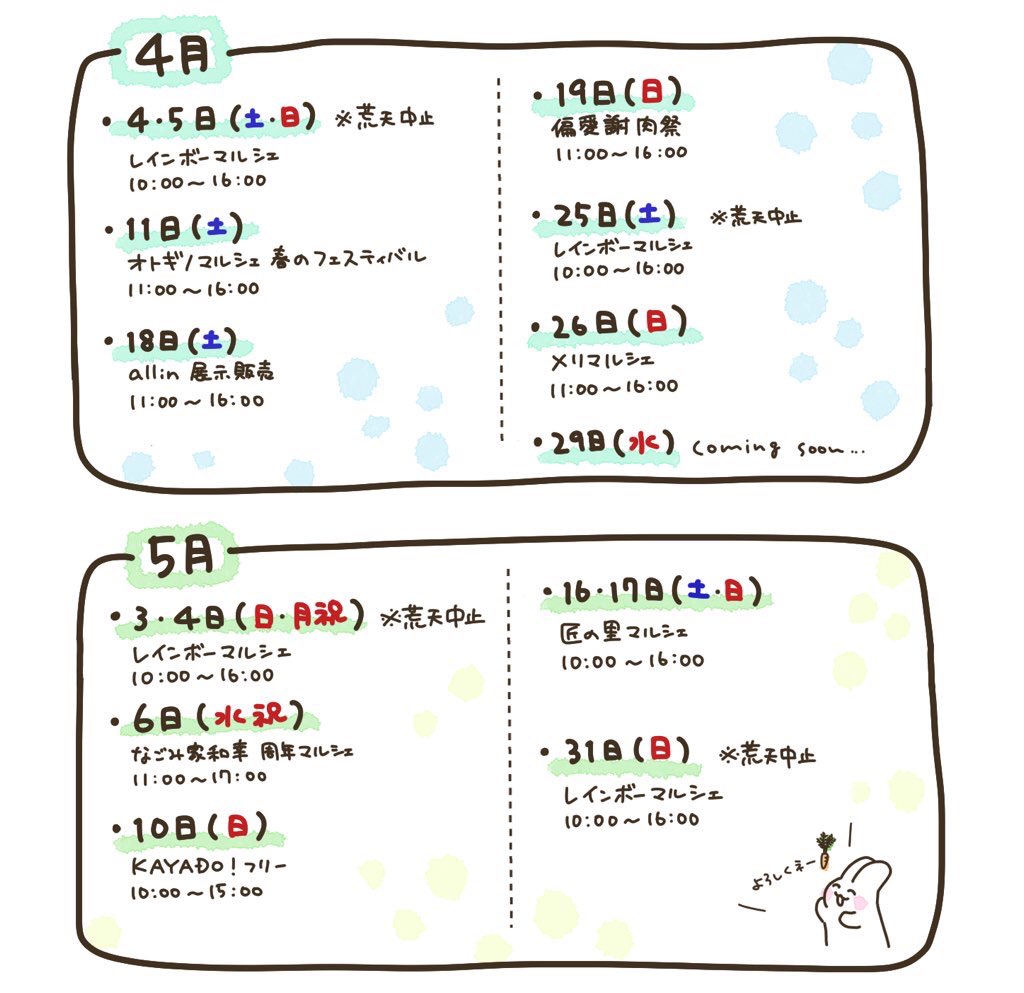 4月
・4・5日(土・日) ※荒天中止
レインボーマルシェ
10:00〜16:00
・11日(土)
オトギノマルシェ 春のフェスティバル
11:00〜16:00
・18日(土)
allin 展示販売
11:00〜16:00
・19日(日)
偏愛謝肉祭
11:00〜16:00
・25日(土) ※荒天中止
レインボーマルシェ
10:00〜16:00
・26日(日)
メリマルシェ
11:00〜16:00
・29日(水) coming soon...
5月
・3・4日(日・月祝) ※荒天中止
レインボーマルシェ
10:00〜16:00
・6日(水祝)
なごみ家和幸 周年マルシェ
11:00〜17:00
・10日(日)
KAYADO!フリー
10:00〜15:00
・16・17日(土・日)
匠の里マルシェ
10:00〜16:00
・31日(日) ※荒天中止
レインボーマルシェ
10:00〜16:00
よろしくネー